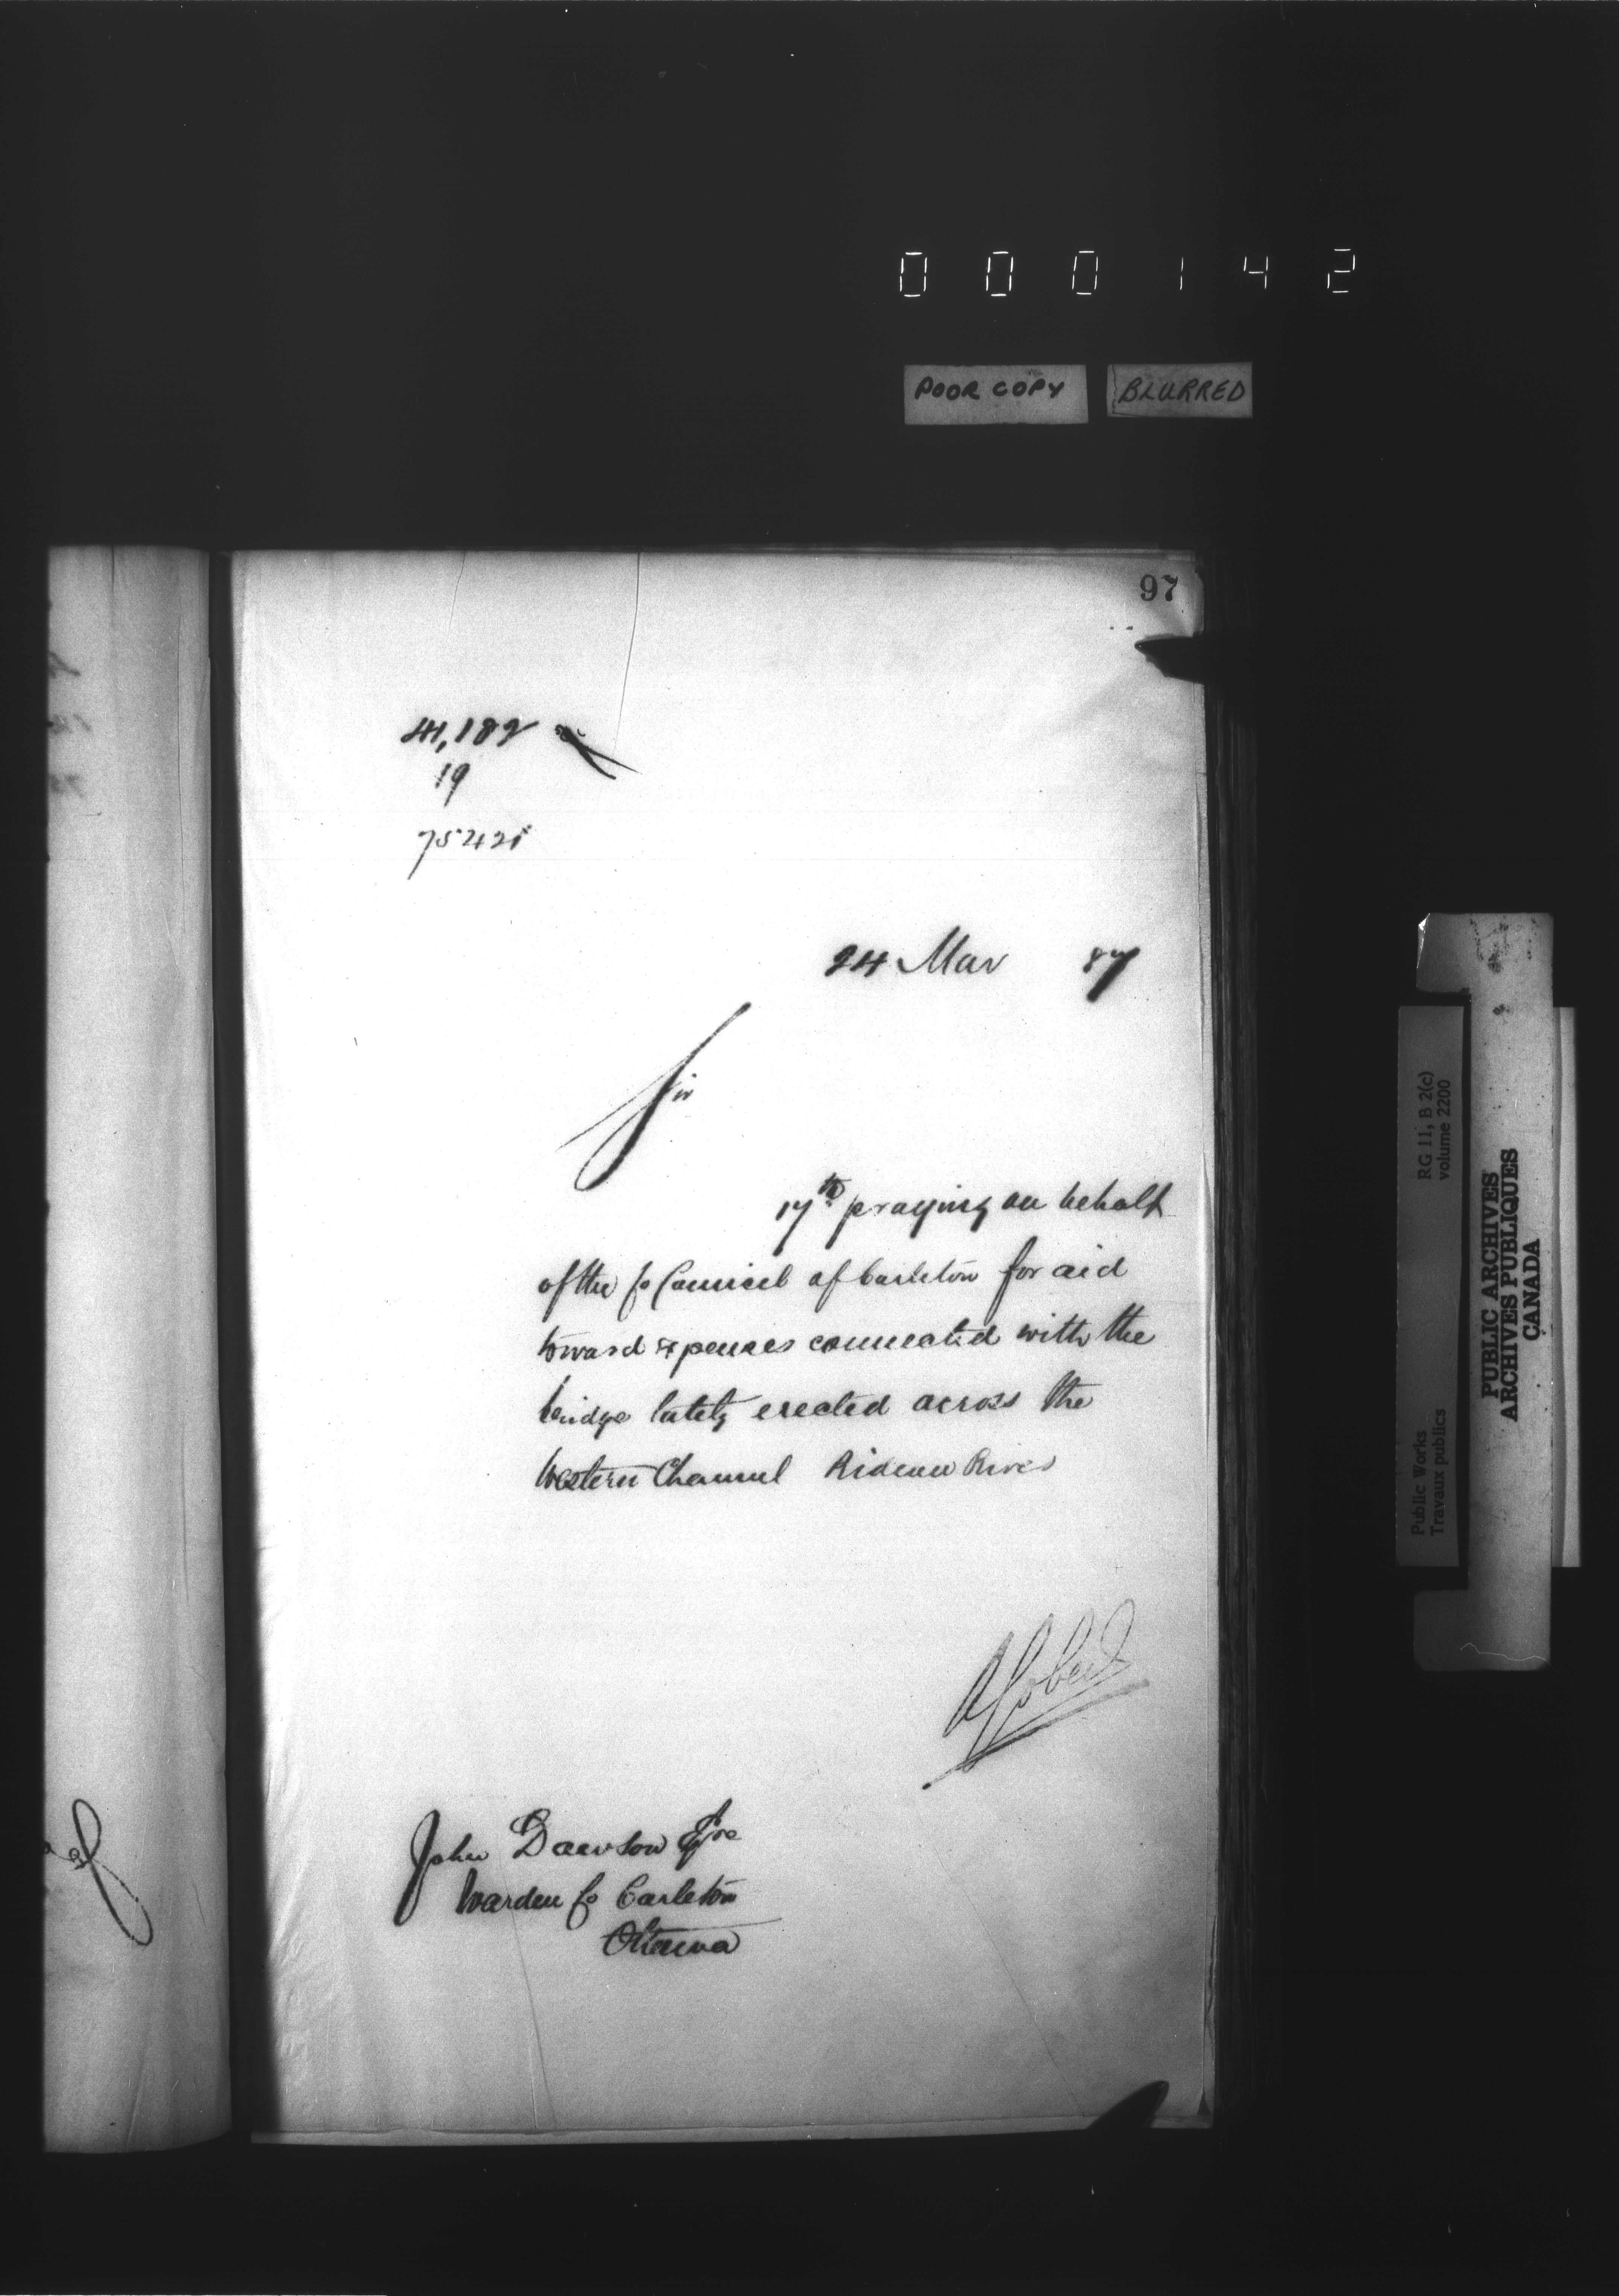 000142
POOR COPY BLURRED
97
41,189
19
75421
24 Mar 87
Sir
17th praying on behalf
of the Co Council of Carleton for aid
toward expenses connected with the
bridge lately erected across the
Western Channel Rideau River
A Gobeil
John Dawson Esq
Warden Co Carleton
Ottawa
RG 11, B 2(c)
volume 2200
Public Works
Travaux publics
PUBLIC ARCHIVES
ARCHIVES PUBLIQUES
CANADA